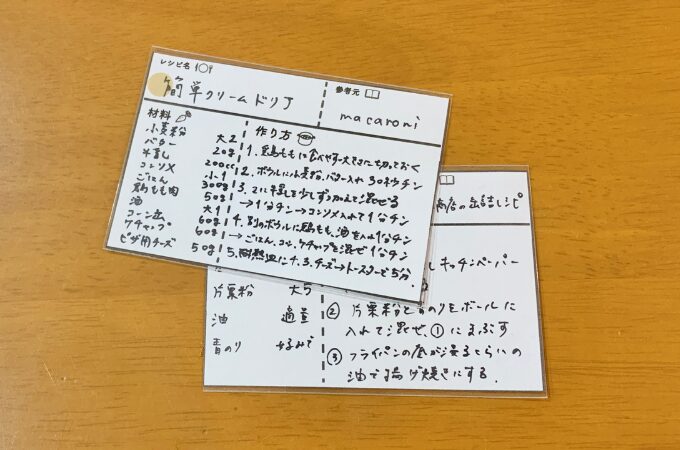 レシピ名
簡単クリームドリア
参考元
macaroni
材料
小麦粉 大2
バター 20g
牛乳 200cc
コンソメ 小1
ごはん 300g
鶏もも肉 50g
油 大1
コーン缶 60g
ケチャップ 60g
ピザ用チーズ 50g
作り方
1. 鶏ももは食べやすい大きさに切っておく
2. ボウルに小麦粉、バター入れ30秒チン
3. 2に牛乳を少しずつ加えて混ぜる
→1分チン→コンソメ入れて1分チン
4. 別のボウルに鶏もも、油を入れ1分チン
→ごはん、コーン、ケチャップを混ぜ1分チン
5. 耐熱皿に4、3、チーズ→トースターで5分.
商店の缶詰レシピ
しキッチンペーパー
片栗粉 大5
油 適量
青のり 好みで
② 片栗粉と青のりをボールに
入れて混ぜ、①にまぶす
③ フライパンの底が浸るくらいの
油で揚げ焼きにする.